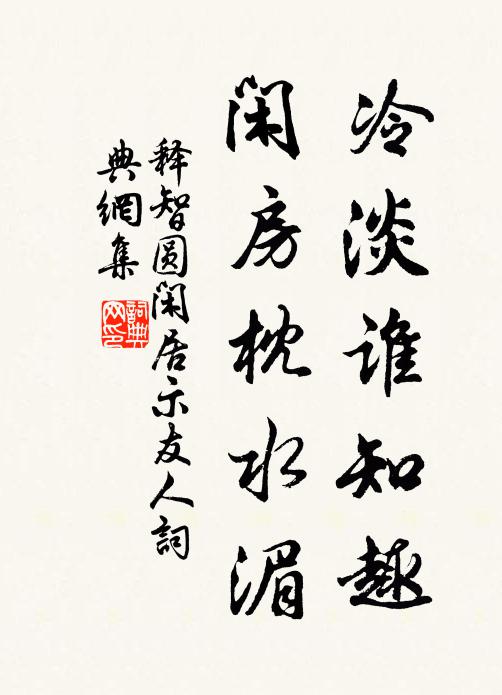 冷淡谁知趣
闲房枕水湄
释智圆闲居示友人詞
典網集
詞典網印